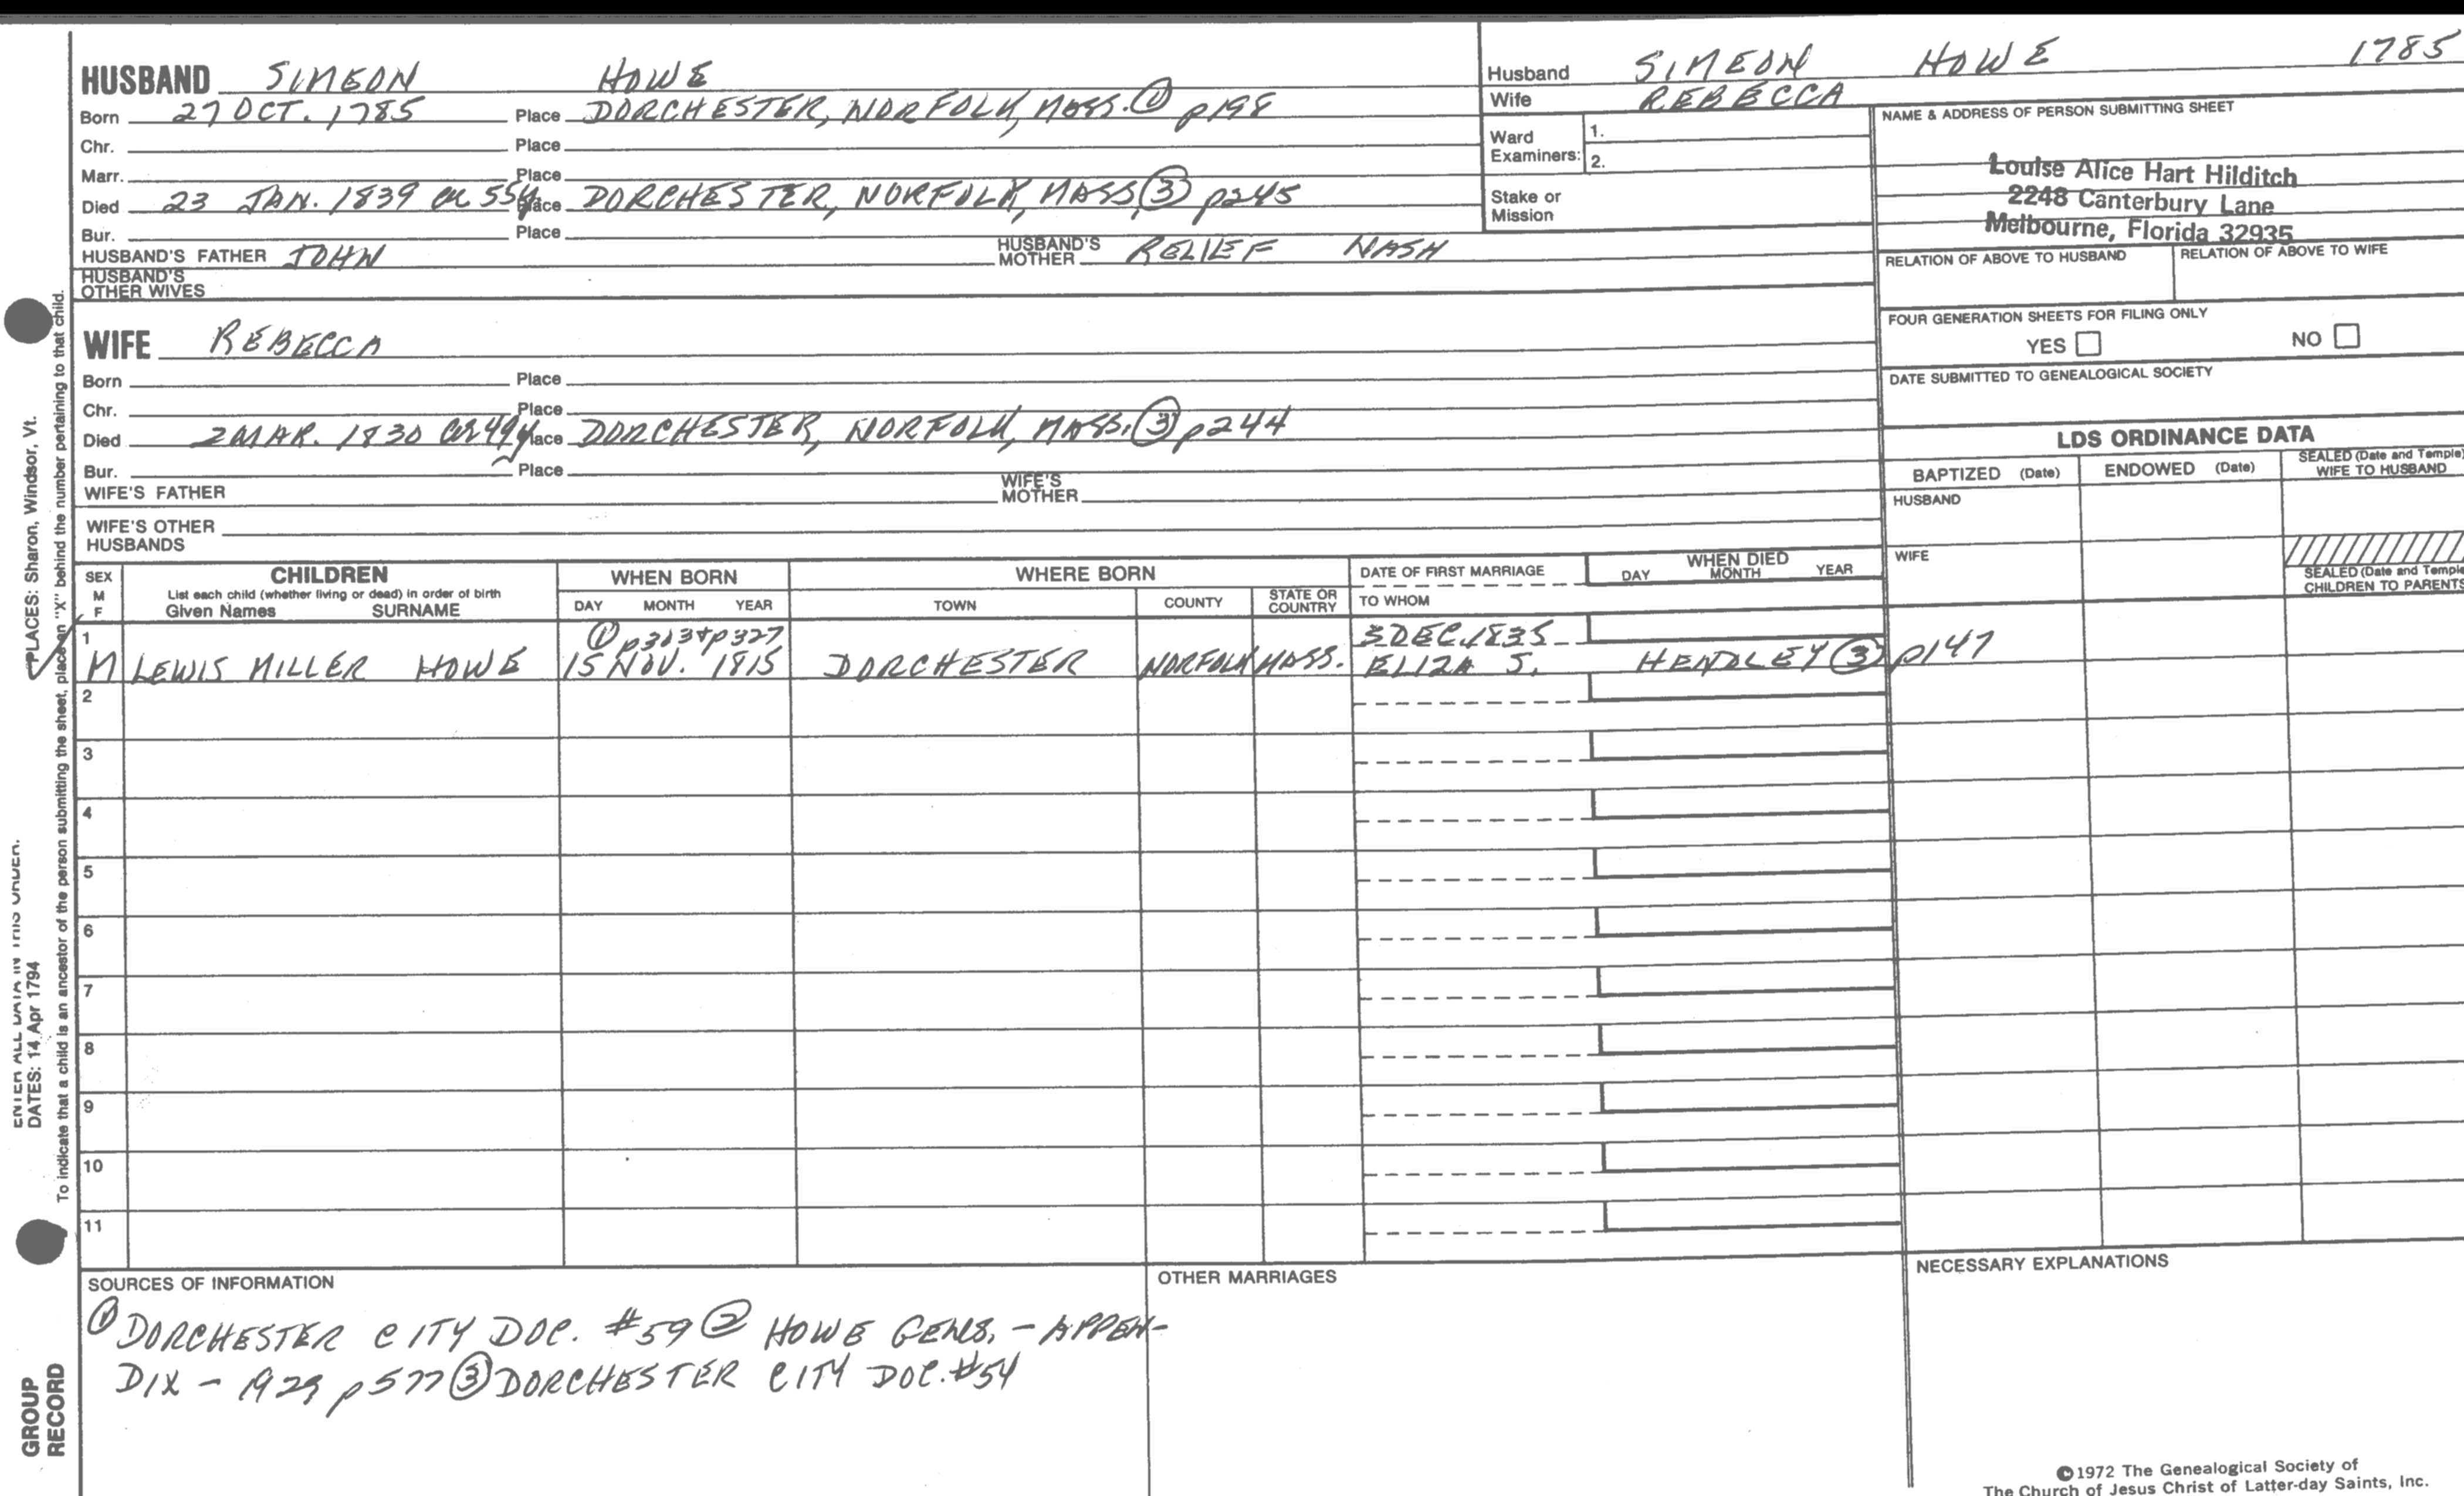 HUSBAND SIMEON HOWE
Born 27 OCT. 1785 Place DORCHESTER, NORFOLK, MASS. ① p198
Chr. Place
Marr. Place
Died 23 JAN. 1839 ae 55y Place DORCHESTER, NORFOLK, MASS, ③ p245
Bur. Place
HUSBAND'S FATHER JOHN HUSBAND'S MOTHER RELIEF NASH
HUSBAND'S OTHER WIVES
Husband SIMEON HOWE 1785
Wife REBECCA
Ward Examiners: 1.
2.
Stake or Mission
NAME & ADDRESS OF PERSON SUBMITTING SHEET
Louise Alice Hart Hilditch
2248 Canterbury Lane
Melbourne, Florida 32935
RELATION OF ABOVE TO HUSBAND RELATION OF ABOVE TO WIFE
FOUR GENERATION SHEETS FOR FILING ONLY
YES NO
DATE SUBMITTED TO GENEALOGICAL SOCIETY
WIFE REBECCA
Born Place
Chr. Place
Died 2 MAR. 1830 ae 49y Place DORCHESTER, NORFOLK, MASS. ③ p244
Bur. Place
WIFE'S FATHER WIFE'S MOTHER
WIFE'S OTHER HUSBANDS
LDS ORDINANCE DATA
BAPTIZED (Date) ENDOWED (Date) SEALED (Date and Temple) WIFE TO HUSBAND
HUSBAND
WIFE
SEALED (Date and Temple) CHILDREN TO PARENTS
SEX M F CHILDREN WHEN BORN WHERE BORN DATE OF FIRST MARRIAGE WHEN DIED
List each child (whether living or dead) in order of birth
Given Names SURNAME DAY MONTH YEAR TOWN COUNTY STATE OR COUNTRY TO WHOM DAY MONTH YEAR
1 ① p303+p327 3 DEC. 1835
M LEWIS MILLER HOWE 15 NOV. 1815 DORCHESTER NORFOLK MASS. ELIZA S. HENDLEY ③ p147
2
3
4
5
6
7
8
9
10
11
SOURCES OF INFORMATION
① DORCHESTER CITY DOC. #59 ② HOWE GENS. - APPEN-
DIX - 1929 p577 ③ DORCHESTER CITY DOC. #54
OTHER MARRIAGES
NECESSARY EXPLANATIONS
©1972 The Genealogical Society of
The Church of Jesus Christ of Latter-day Saints, Inc.
ENTER ALL DATA IN THIS ORDER.
DATES: 14 Apr 1794
PLACES: Sharon, Windsor, Vt.
To indicate that a child is an ancestor of the person submitting the sheet, place an "X" behind the number pertaining to that child.
GROUP
RECORD